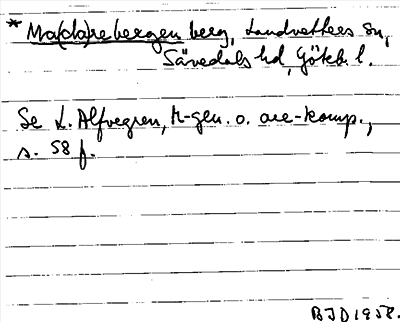 * Ma(da)rebergen berg, Landvetters sn,
Sävedals hd, Göteb. l.
Se L. Alfvegren, r-gen. o. are-komp.,
s. 58 f.
BJD 1958.